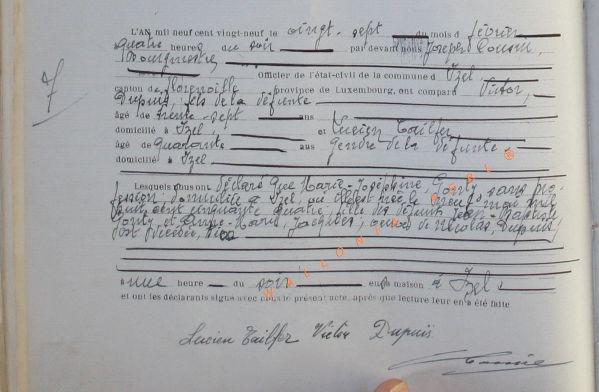 7
L'AN mil neuf cent vingt-neuf le vingt-sept du mois de février
quatre heures du soir par devant nous Joseph
Bourgmestre, Officier de l'état-civil de la commune d Izel
canton de Florenville province de Luxembourg, ont comparu Victor,
Dupuis, fils de la défunte
âgé de trente-sept ans
domicilié à Izel et Lucien Tailfer
âgé de quarante ans gendre de la défunte
domicilié à Izel
Lesquels nous ont déclaré que Marie-Joséphine, sans pro-
fession, domiciliée à Izel, où elle est née le neuf mai mil
huit cent cinquante quatre, fille des défunts Jean-Baptiste
et Marie, Jacques, veuve de Nicolas, Dupuis,
est décédée,
à une heure du soir en sa maison à Izel
et ont les déclarants signé avec nous le présent acte, après que lecture leur en a été faite
Lucien Tailfer Victor Dupuis